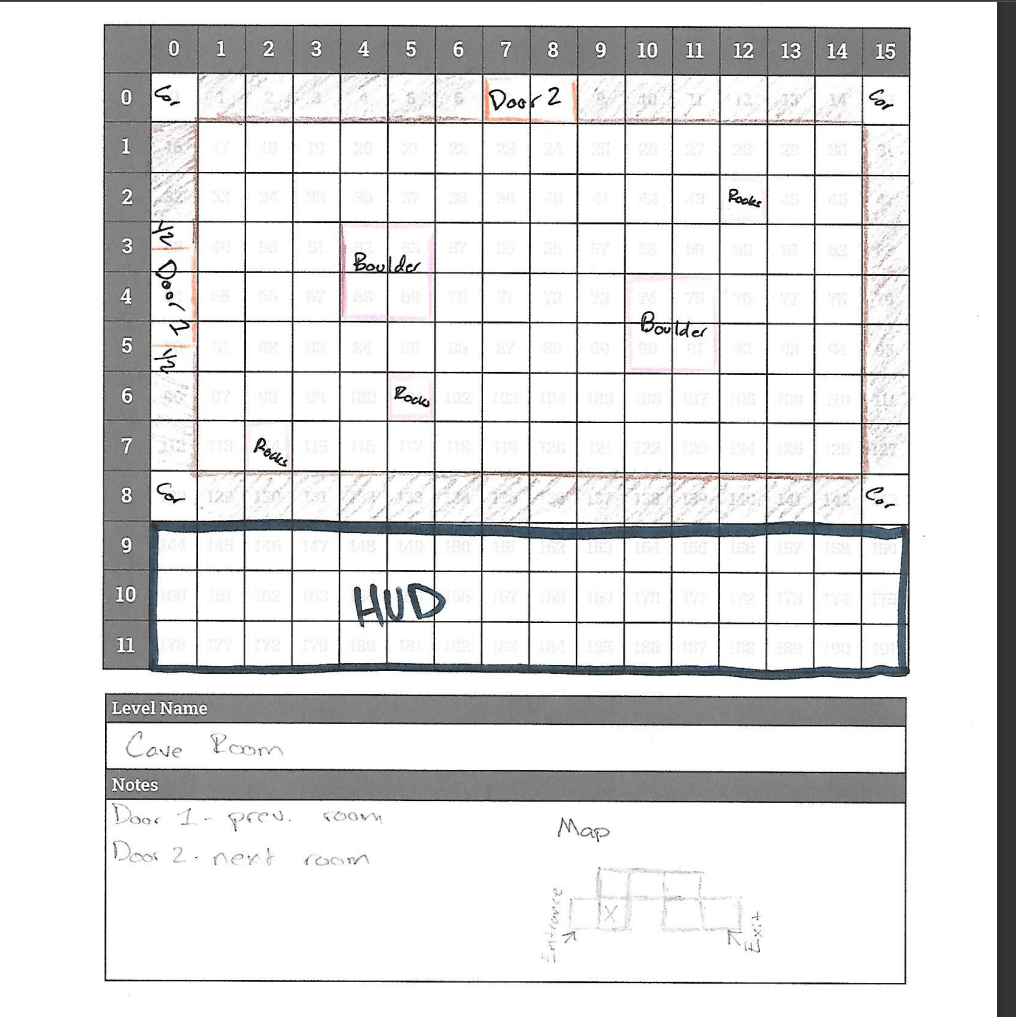 0 1 2 3 4 5 6 7 8 9 10 11 12 13 14 15
0 Cor 1 2 3 4 5 6 Door 2 9 10 11 12 13 14 Cor
1 16 17 18 19 20 21 22 23 24 25 26 27 28 29 30 31
2 32 33 34 35 36 37 38 39 40 41 42 43 Rocks 45 46 47
3 1/2 49 50 51 52 53 57 55 56 57 58 59 60 61 62 63
Boulder
Door 1
4 65 66 67 68 69 70 71 72 73 74 75 76 77 78 79
Boulder
5 1/2 81 82 83 84 85 86 87 88 89 90 91 92 93 94 95
6 96 97 98 99 100 Rocks 102 103 104 105 106 107 108 109 110 111
7 112 113 Rocks 115 116 117 118 119 120 121 122 123 124 125 126 127
8 Cor 129 130 131 132 133 134 135 137 138 139 140 141 142 Cor
9 144 145 146 147 148 149 150 151 152 153 154 155 156 157 158 159
10 160 161 162 163 HUD 166 167 168 169 170 171 172 173 174 175
11 176 177 178 179 180 181 182 183 184 185 186 187 188 189 190 191
Level Name
Cave Room
Notes
Door 1 - prev. room
Door 2 - next room
Map
Entrance
X
Exit